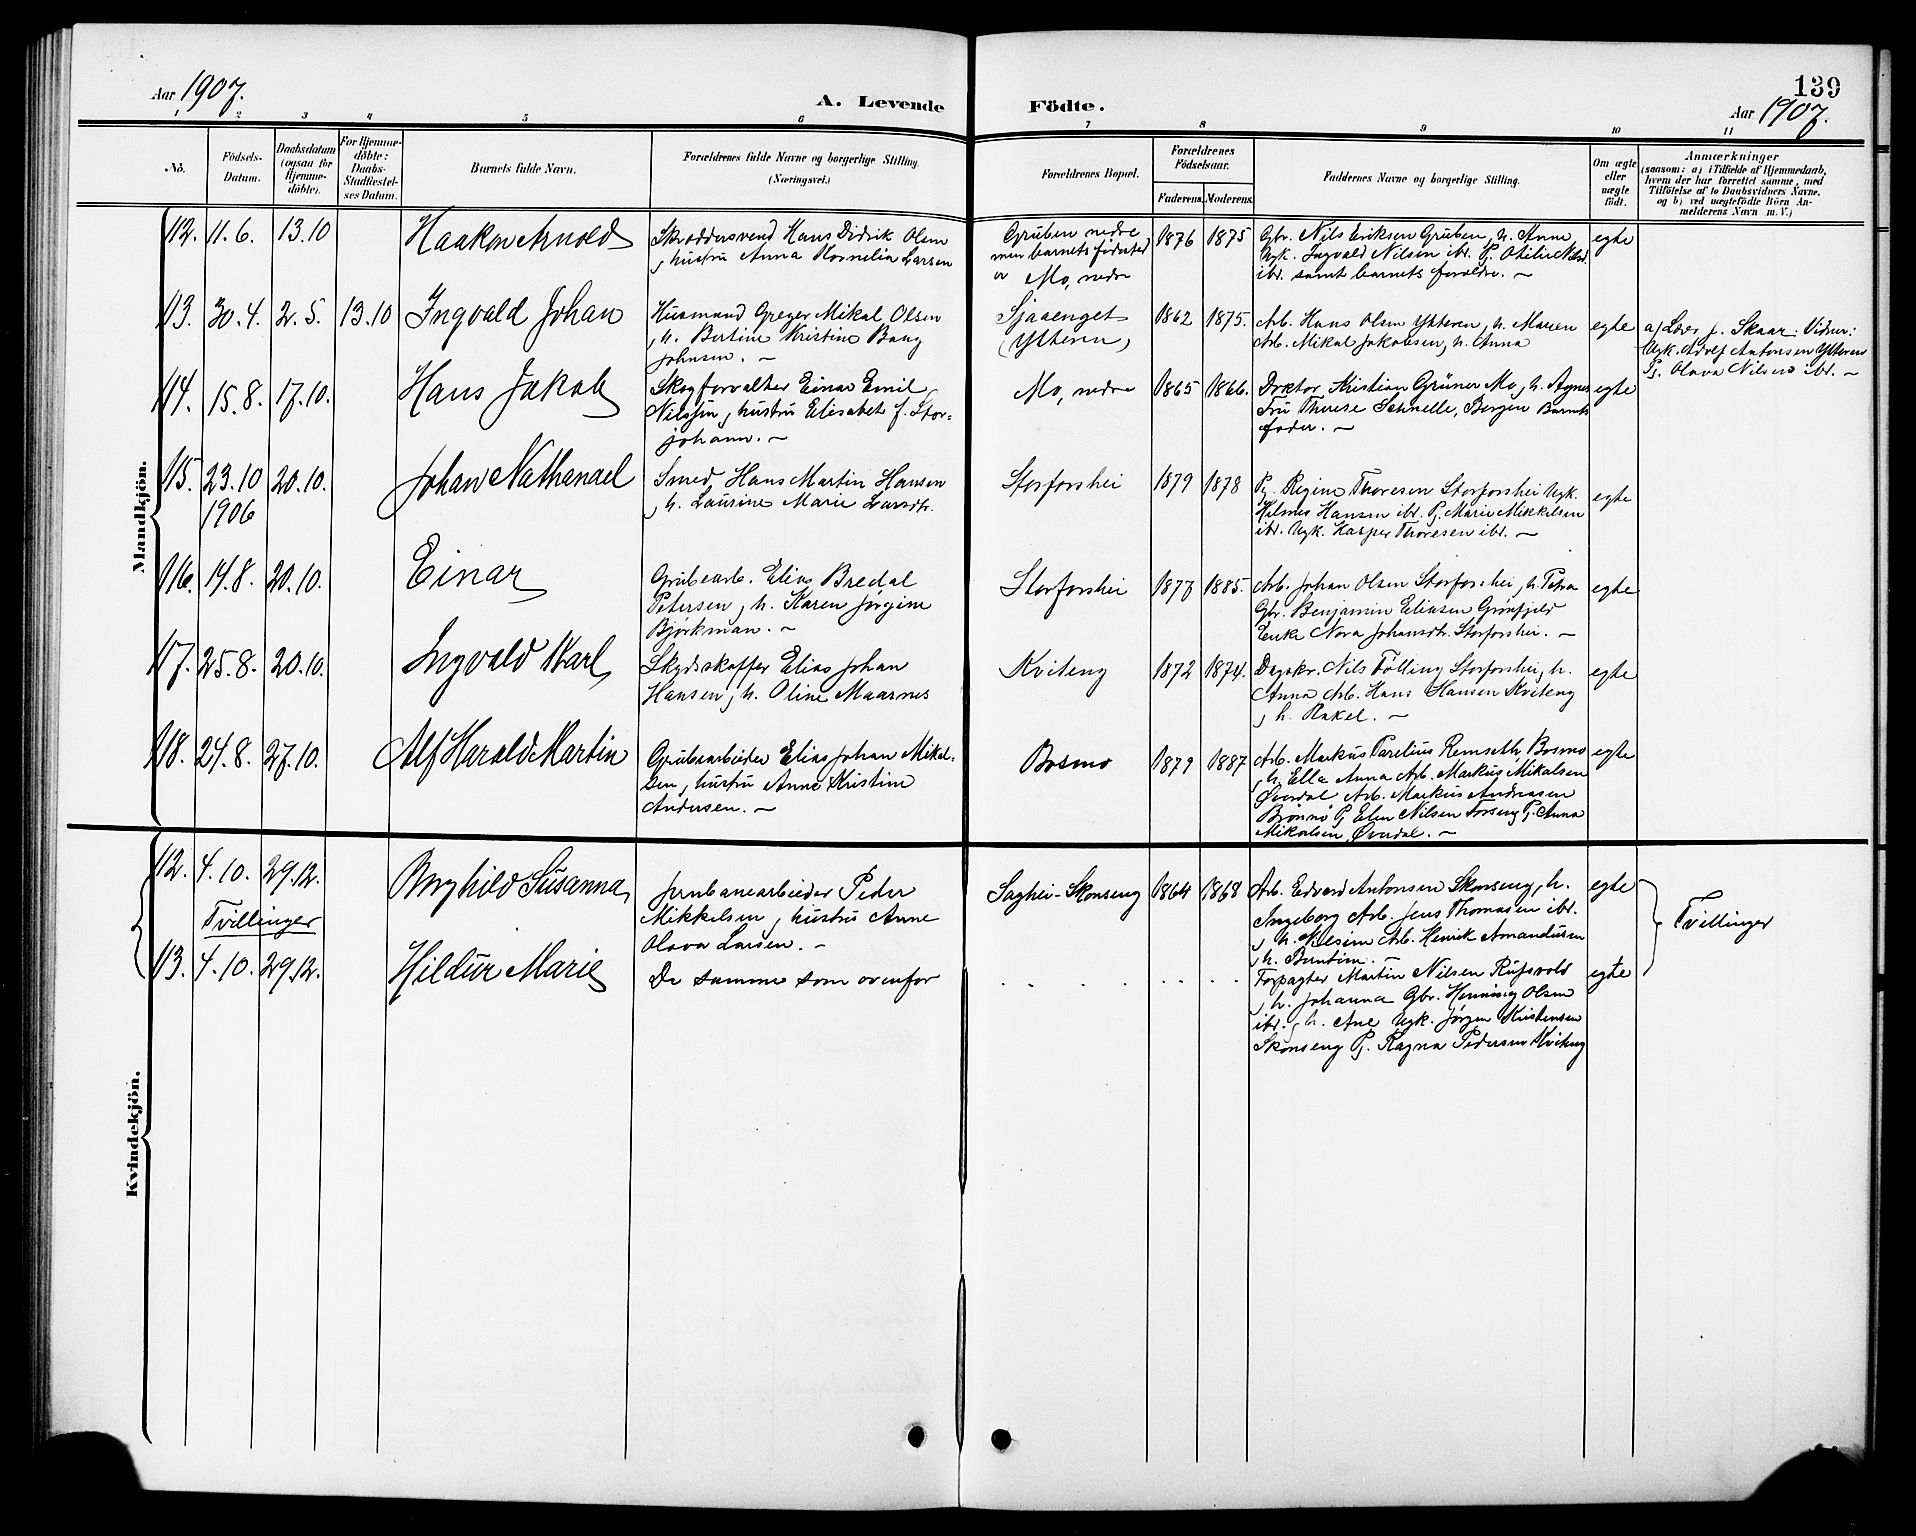 139
Aar 1907.
A. Levende Födte.
Aar 1907.
1 2 3 4 5 6 7 8 9 10 11
No.
Födsels-Datum.
Daabsdatum (ogsaa for Hjemme-döbte).
For Hjemme-döbte: Daabs-Stadfæstel-ses Datum.
Barnets fulde Navn.
Forældrenes fulde Navne og borgerlige Stilling. (Næringsvei.)
Forældrenes Bopæl.
Forældrenes Födselsaar.
Faderens. Moderens.
Faddernes Navne og borgerlige Stilling.
Om ægte eller uægte födt.
Anmærkninger
(saasom: a) i Tilfælde af Hjemmedaab, hvem der har forrettet samme, med Tilföielse af to Daabsvidners Navne. og b) ved uægtefödte Börn An-melderens Navn m. V.)
Mandkjön.
112. 11.6. 13.10 Haakon Arnold
Skræddersvend Hans Didrik Olsen
, hustru Anna Kornelia Larsen
Gruben nedre
men barnets fødested
er Mo, nedre
1876 1875
Gbr. Nils Eriksen Gruben, h. Anna
Ugk. Ingvald Nilsen ibr. Pj. Otilie Nilsd.
ibr. samt barnets forældre. ~
egte
113. 30.4. 2.5. 13.10 Ingvald Johan
Husmand Greger Mikal Olsen
, h. Bertine Kristine Bang
Johnsen. ~
Sjaaenget
(Ytteren)
1862 1875.
Arb. Hans Olsen Ytteren, h. Maren
Arb. Mikal Jakobsen, h. Anna
egte
a) Lærer J. Skaar: Vidner:
Ugk. Adolf Antonsen Ytteren
Pj. Olava Nilsen ibr. ~
114. 15.8. 17.10. Hans Jakob
Skogforvalter Einar Emil
Nilssen, hustru Elisabet f. Stor=
johann. ~
Mo, nedre
1865 1866.
Doktor Kristian Grüner Mo, h. Agnes
Fru Therese Schnelle, Bergen Barnets
fader. ~
egte
115. 23.10 1906 20.10. Johan Nathanael
Smed Hans Martin Hansen
, h. Laurine Marie Larsdtr.
Storforshei
1879 1878
Pj. Regine Thoresen Storforshei Ugk.
Hansen ibr. Pj. Marie Mikkelsen
ibr. Ugk. Kasper Thoresen ibr. ~
egte
116. 14.8. 20.10. Einar
Grubearb. Elias Bredal
Petersen, h. Karen Jørgine
Bjørkman. ~
Storforshei
1877 1885.
Arb. Johan Olsen Storforshei, h. Petra
Gbr. Benjamin Eliasen Grønfjeld
Enke Nora Johansdtr. Storforshei. ~
egte
117. 25.8. 20.10. Ingvald Karl
Skydsskaffer Elias Johan
Hansen, h. Oline Maarnes
Kviteng
1872 1874.
Dagskr. Nils Følling Storforshei, h.
Anna Arb. Hans Hansen Kviteng
, h. Rakel. ~
egte
118. 24.8. 27.10. Alf Harald Martin
Grubearbeider Elias Johan Mikal-
sen, hustru Anne Kristine
Andersen. ~
Bosmo
1879 1887
Arb. Markus Parelius Remseth, Bosmo
, h. Ella Anna Arb. Markus Mikalsen
Øverdal Arb. Markus Andreasen
Brønnø Pj. Elen Nilsen Forseng Pj. Anna
Mikalsen, Øverdal. ~
egte
Kvindekjön.
112. 4.10. 29.12. Borghild Susanna
Tvillinger
Jernbanearbeider Peder
Mikkelsen, hustru Anne
Olava Larsen. ~
Saghei-Skonseng
1864 1868
Arb. Edvard Antonsen Skonseng, h.
Ingeborg Arb. Jens Thomasen ibr.
, h. Nilsine Arb. Henrik Amandusen
, h. Berntine. ~
egte
Tvillinger
113. 4.10. 29.12. Hildur Marie
De samme som ovenfor
Forpagter Martin Nilsen Rufsvold
, h. Johanna Gbr. Henning Olsen
ibr., h. Ane Ugk. Jørgen Kristensen
Skonseng Pj. Ragna Pedersen Kviteng
egte